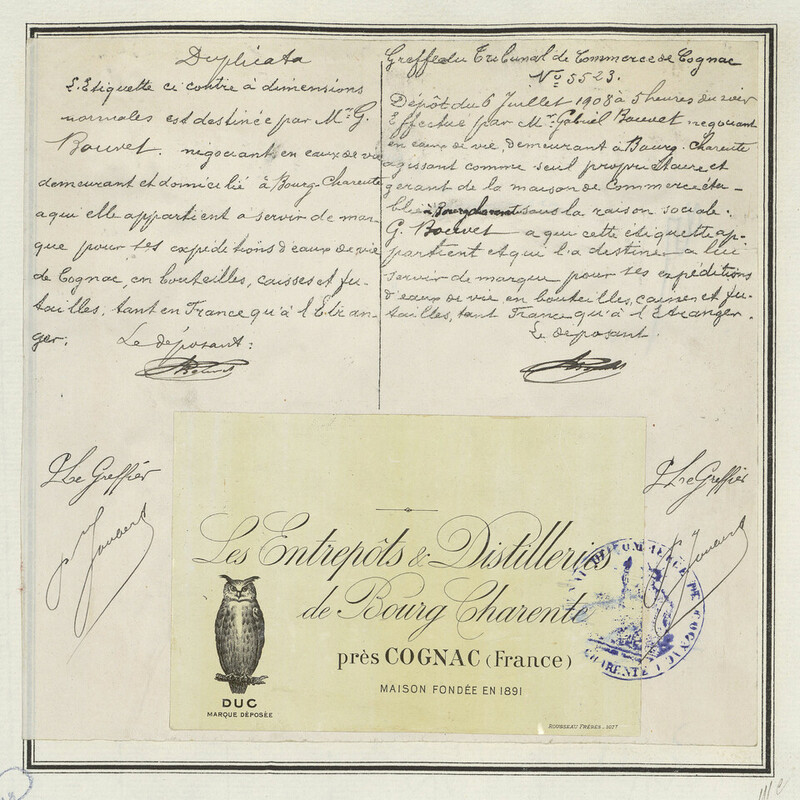 Duplicata
L'Etiquette ci contre à dimensions
normales est destinée par Mr. G.
Bouvet. négociant en eaux de vie
demeurant et domicilié à Bourg-Charente
a qui elle appartient a servir de mar-
que pour ses expéditions d'eaux de vie
de Cognac, en bouteilles, caisses et fu-
tailles, tant en France qu'à l'Etran-
ger.
Le déposant:
Greffe du Tribunal de Commerce de Cognac
No 5523.
Dépôt du 6 Juillet 1908 à 5 heures du soir
Effectué par Mr. Gabriel Bouvet negociant
en eaux de vie demeurant à Bourg-Charente
agissant comme seul propriétaire et
gerant de la maison de Commerce éta-
blie à Bourg charente sous la raison sociale:
G. Bouvet a qui cette étiquette ap-
partient et qui l'a destine a lui
servir de marque pour ses expéditions
d'eaux de vie en bouteilles, caisses et fu-
tailles, tant France qu'à l'Etranger.
Le déposant.
Le Greffier
Le Greffier
Les Entrepôts & Distilleries
de Bourg Charente
près COGNAC (France)
MAISON FONDÉE EN 1891
DUC
MARQUE DÉPOSÉE
ROUSSEAU FRÈRES.
COMMERCE DE COGNAC
CHARENTE